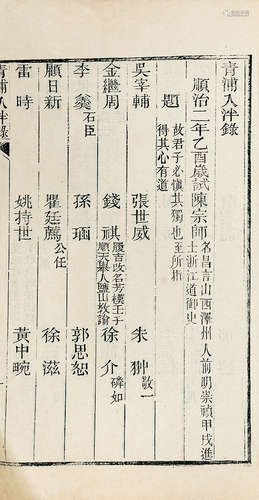 青浦入泮錄
順治二年乙酉歲試陳宗師名昌言山西澤州人前明崇禎甲戌進士浙江道御史
題 故君子必愼其獨也至所樞得其心有道
吳宰輔 張世威 朱翀敬一
金繼周 錢祺 順天舉人 徐介磷如
李羹石臣 孫瑠 郭思恕
顧日新 瞿廷鷹公任 徐滋
雷時 姚持世 黃中畹
青浦入泮錄